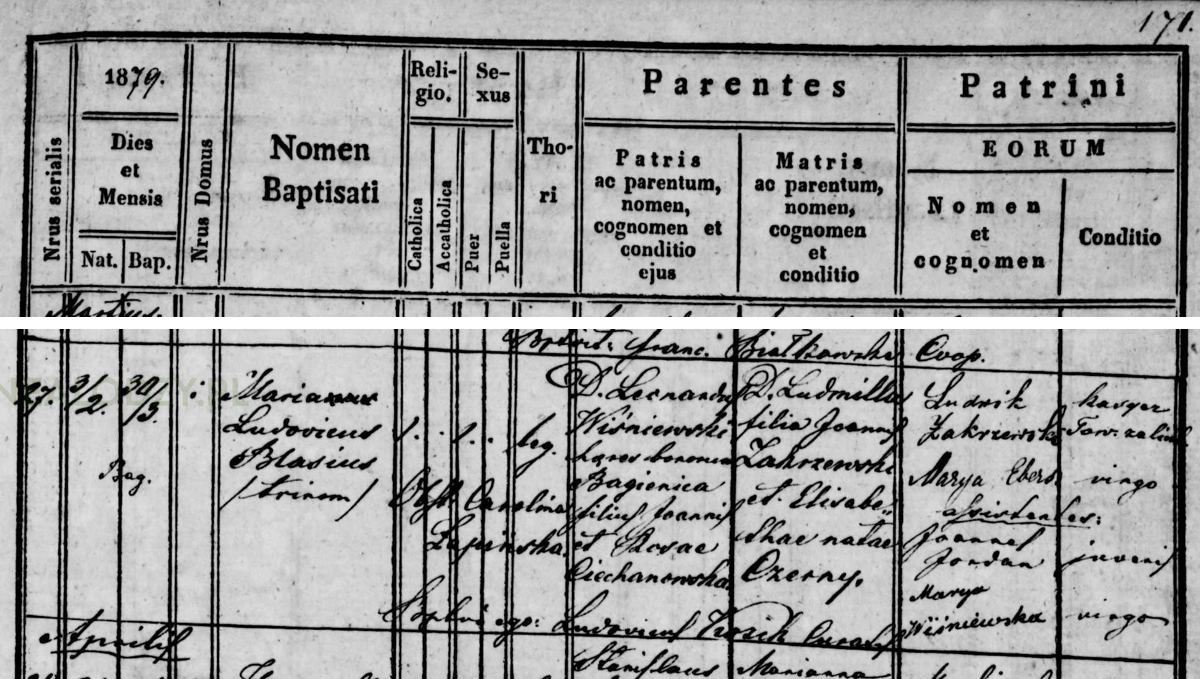 171.
1879.
Nrus serialis
Dies
et
Mensis
Nat.
Bap.
Nrus Domus
Nomen
Baptisati
Reli-
gio.
Catholica
Accatholica
Se-
xus
Puer
Puella
Tho-
ri
Parentes
Patris
ac parentum,
nomen,
cognomen et
conditio
ejus
Matris
ac parentum,
nomen,
cognomen
et
conditio
Patrini
EORUM
Nomen
et
cognomen
Conditio
Martius
Franc. Białkowski Coop.
27.
3/2.
30/3.
Bag.
Maria
Ludovicus
Blasius
/trinom/
1. . 1. . leg.
Obst. Carolina
Łapińska
D. Leonardus
Wiśniewski
Bagienica
filius Joannis
et Rosae
Ciechanowska
D. Ludmilla
filia Joannis
Zakrzewski
et Elisabe-
thae natae
Czerny.
Ludwik
Zakrzewski
Marya Ebers
assistentes:
Joannes
Jordan
Marya
Wiśniewska
virgo
juvenis
virgo
ego: Ludovicus Kozik Curatus
Aprilis
Stanislaus
Marianna